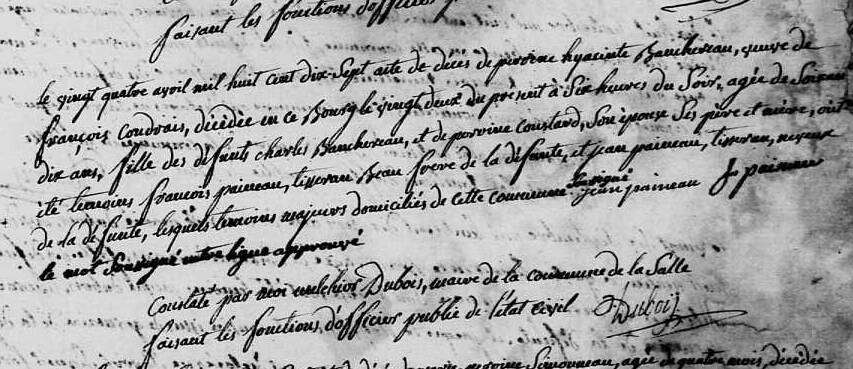 faisant les fonctions d'officier p
le vingt quatre avril mil huit cent dix-sept acte de décès de perrine hyacinte Banchereau, veuve de
françois Coudrais, décédée en ce Bourg le vingt deux du présent à Six heures du Soir, agée de Soixante
dix ans, fille des défunts charles Banchereau, et de perrine Coustard, Son épouse Ses père et mère, ont
été temoins françois paineau, tisseran Beau frere de la défunte, et jean paineau, tisseran, neveux
de la défunte, lesquels temoins majeurs domiciliés de cette commune Soussigné jean paineau J paineau
le mot Soussigné entre ligne approuvé
Constaté par moi melchior Dubois, maire de la commune de la Salle
faisant les fonctions d'officier public de l'état Civil Dubois
perrine Simonneau, agée de quatre mois, décédée